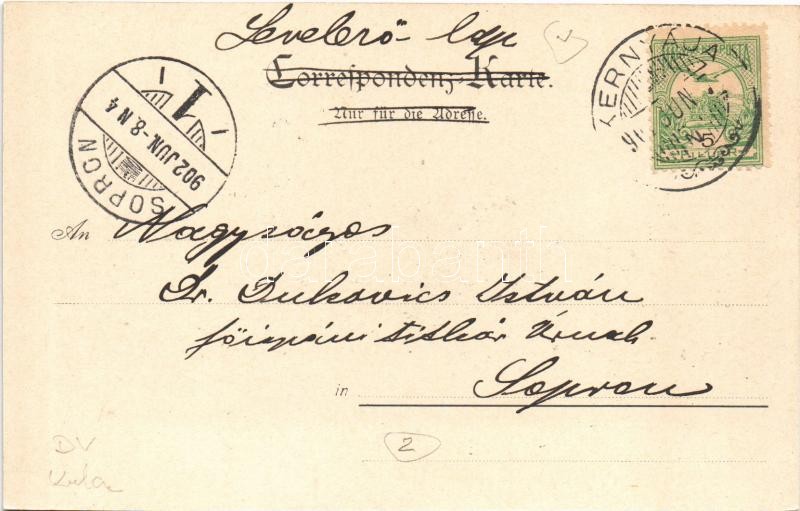 Levelező-lap
Correspondenz-Karte.
Nur für die Adresse.
SOPRON
902 JUN.-8. N 4
1
KERN
JUN
5
An Nagyságos
Dr. Dukavics István
főispáni titkár Úrnak
in Sopron
2
DV
darabanth